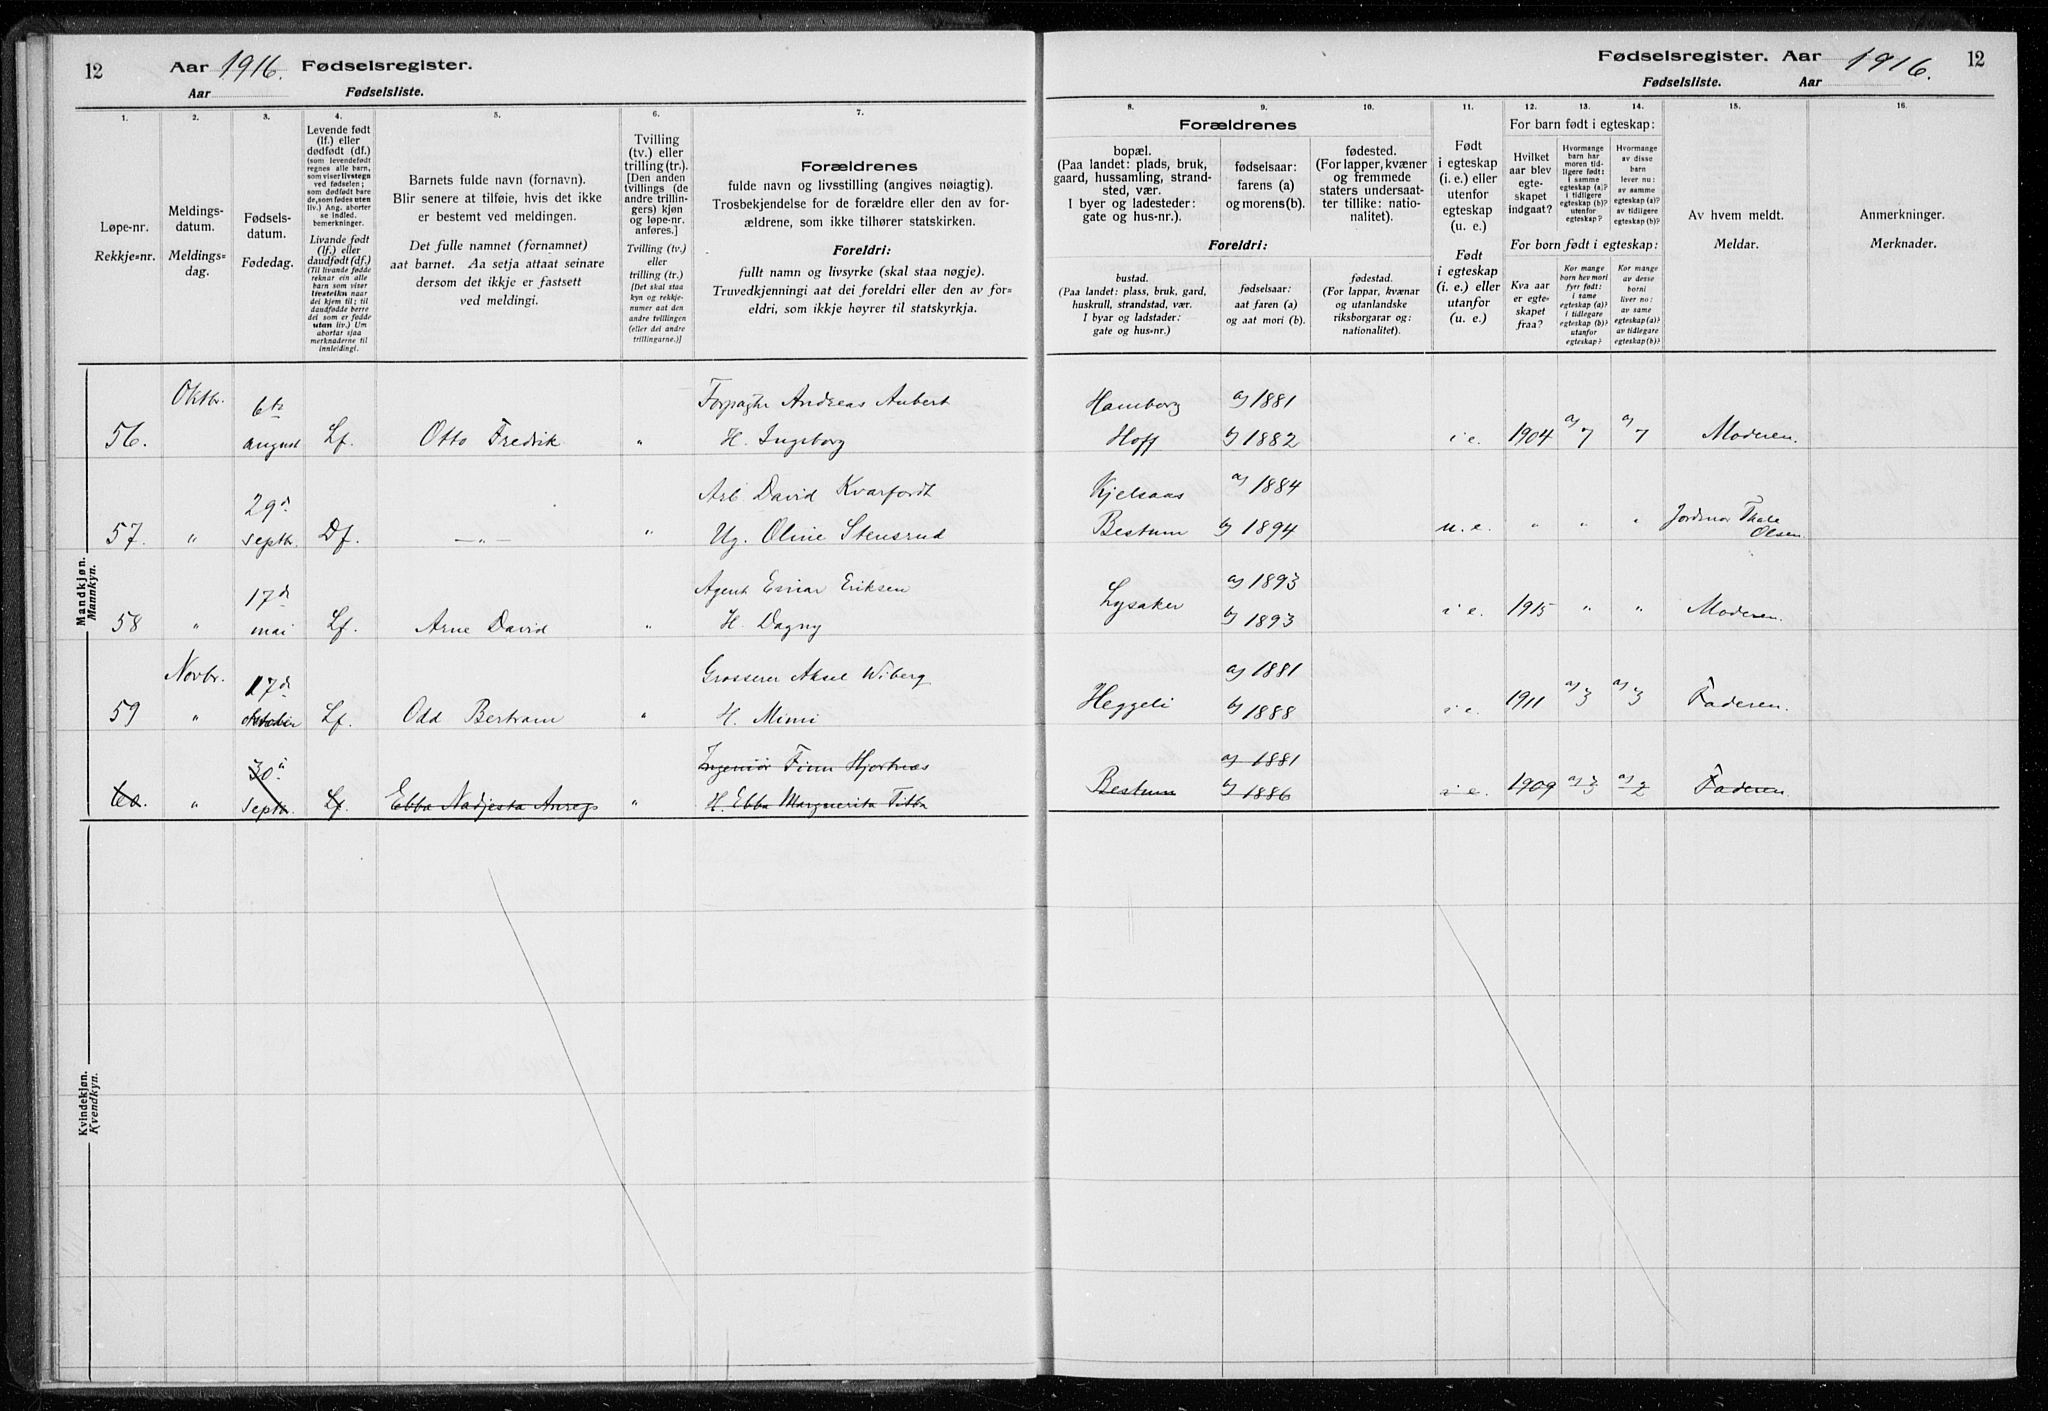 12 Aar 1916. Fødselsregister.
Aar Fødselsliste.
Fødselsregister. Aar 1916. 12
Fødselsliste. Aar
1. 2. 3. 4. 5. 6. 7. 8. 9. 10. 11. 12. 13. 14. 15. 16.
Løpe-nr.
Rekkje=nr.
Meldings-
datum.
Meldings=
dag.
Fødsels-
datum.
Fødedag.
Levende født
(lf.) eller
dødfødt (df.)
(som levendefødt
regnes alle barn,
som viser livstegn
ved fødselen;
som dødfødt bare
de, som fødes uten
liv.) Ang. aborter
se indled.
bemerkninger.
Livande fødd
(lf.) eller
daudfødt (df.)
(Til livande fødde
reknar ein alle
barn som viser
livsteikn naar
dei kjem til; til
daudfødde berre
dei som er fødde
utan liv.) Um
abortar sjaa
merknaderne til
innleidingi.
Barnets fulde navn (fornavn).
Blir senere at tilføie, hvis det ikke
er bestemt ved meldingen.
Det fulle namnet (fornamnet)
aat barnet. Aa setja attaat seinare
dersom det ikkje er fastsett
ved meldingi.
Tvilling
(tv.) eller
trilling (tr.).
[Den anden
tvillings (de
andre trillin-
gers) kjøn
og løpe-nr.
anføres.]
Tvilling (tv.)
eller
trilling (tr.)
[Det skal staa
kyn og rekkje-
numer aat den
andre tvillingen
(eller dei andre
trillingarne.)]
Forældrenes
fulde navn og livsstilling (angives nøiagtig).
Trosbekjendelse for de forældre eller den av for-
ældrene, som ikke tilhører statskirken.
Foreldri:
fullt namn og livsyrke (skal staa nøgje).
Truvedkjenningi aat dei foreldri eller den av for=
eldri, som ikkje høyrer til statskyrkja.
Forældrenes
bopæl.
(Paa landet: plads, bruk,
gaard, hussamling, strand-
sted, vær.
I byer og ladesteder:
gate og hus-nr.).
fødselsaar:
farens (a)
og morens (b).
fødested.
(For lapper, kvæner
og fremmede
staters undersaat-
ter tillike: natio-
nalitet).
Foreldri:
bustad.
(Paa landet: plass, bruk, gard,
huskrull, strandstad, vær.
I byar og ladstader:
gate og hus=nr.).
fødselsaar:
aat faren (a)
og aat mori (b).
fødestad.
(For lappar, kvænar
og utanlandske
riksborgarar og:
nationalitet).
Født
i egteskap
(i. e.) eller
utenfor
egteskap
(u. e.)
Født
i egteskap
(i. e.) eller
utanfor
(u. e.)
For barn født i egteskap:
Hvilket
aar blev
egte-
skapet
indgaat?
Hvormange
barn har
moren tid-
ligere født:
i samme
egteskap (a)?
i tidligere
egteskap (b)?
utenfor
egteskap?
Hvormange
av disse
barn
lever nu:
av samme
egteskap (a)?
av tidligere
egteskap (b)?
For born fødd i egteskap:
Kva aar
er egte-
skapet
fraa?
Kor mange
born hev mori
fyrr født:
i same
egteskap (a)?
i tidlegare
egteskap (b)?
utanfor
egteskap?
Kor mange
av desse
borni
liver no:
av same
egteskap (a)?
av tidlegare
egteskap (b)?
Av hvem meldt.
Meldar.
Anmerkninger.
Merknader.
Mandkjøn.
Mannkyn.
Oktbr. 6te Forpagter Andreas Aubert Hamborg a) 1881
56. august Lf. Otto Fredrik " H. Ingeborg Hoff b) 1882 i e. 1904 a) 7 a) 7 Moderen.
29d Arb David Kvarfordt Kjelsaas a) 1884
57. " septbr. Df. —"— " Ug. Oline Stensrud Bestum b) 1894 u. e. " " " Jordmor Thale
Olsen.
17d Agent Einar Eriksen a) 1893
58 " mai Lf. Arne David " H. Dagny Lysaker b) 1893 i e. 1915 " " Moderen.
Novbr. 17d Grosserer Aksel Wiberg a) 1881
59 " Lf. Odd Bertram " H. Mimi Heggeli b) 1888 i e. 1911 a) 3 a) 3 Faderen.
30d Ingeniør Finn Hjortnæs a) 1881
60. " septbr. Lf. Ebba Nadjesta " H. Ebba Marguerita Bestum b) 1886 i e. 1909 a) 3 a) 2 Faderen.
Kvindekjøn.
Kvendkyn.